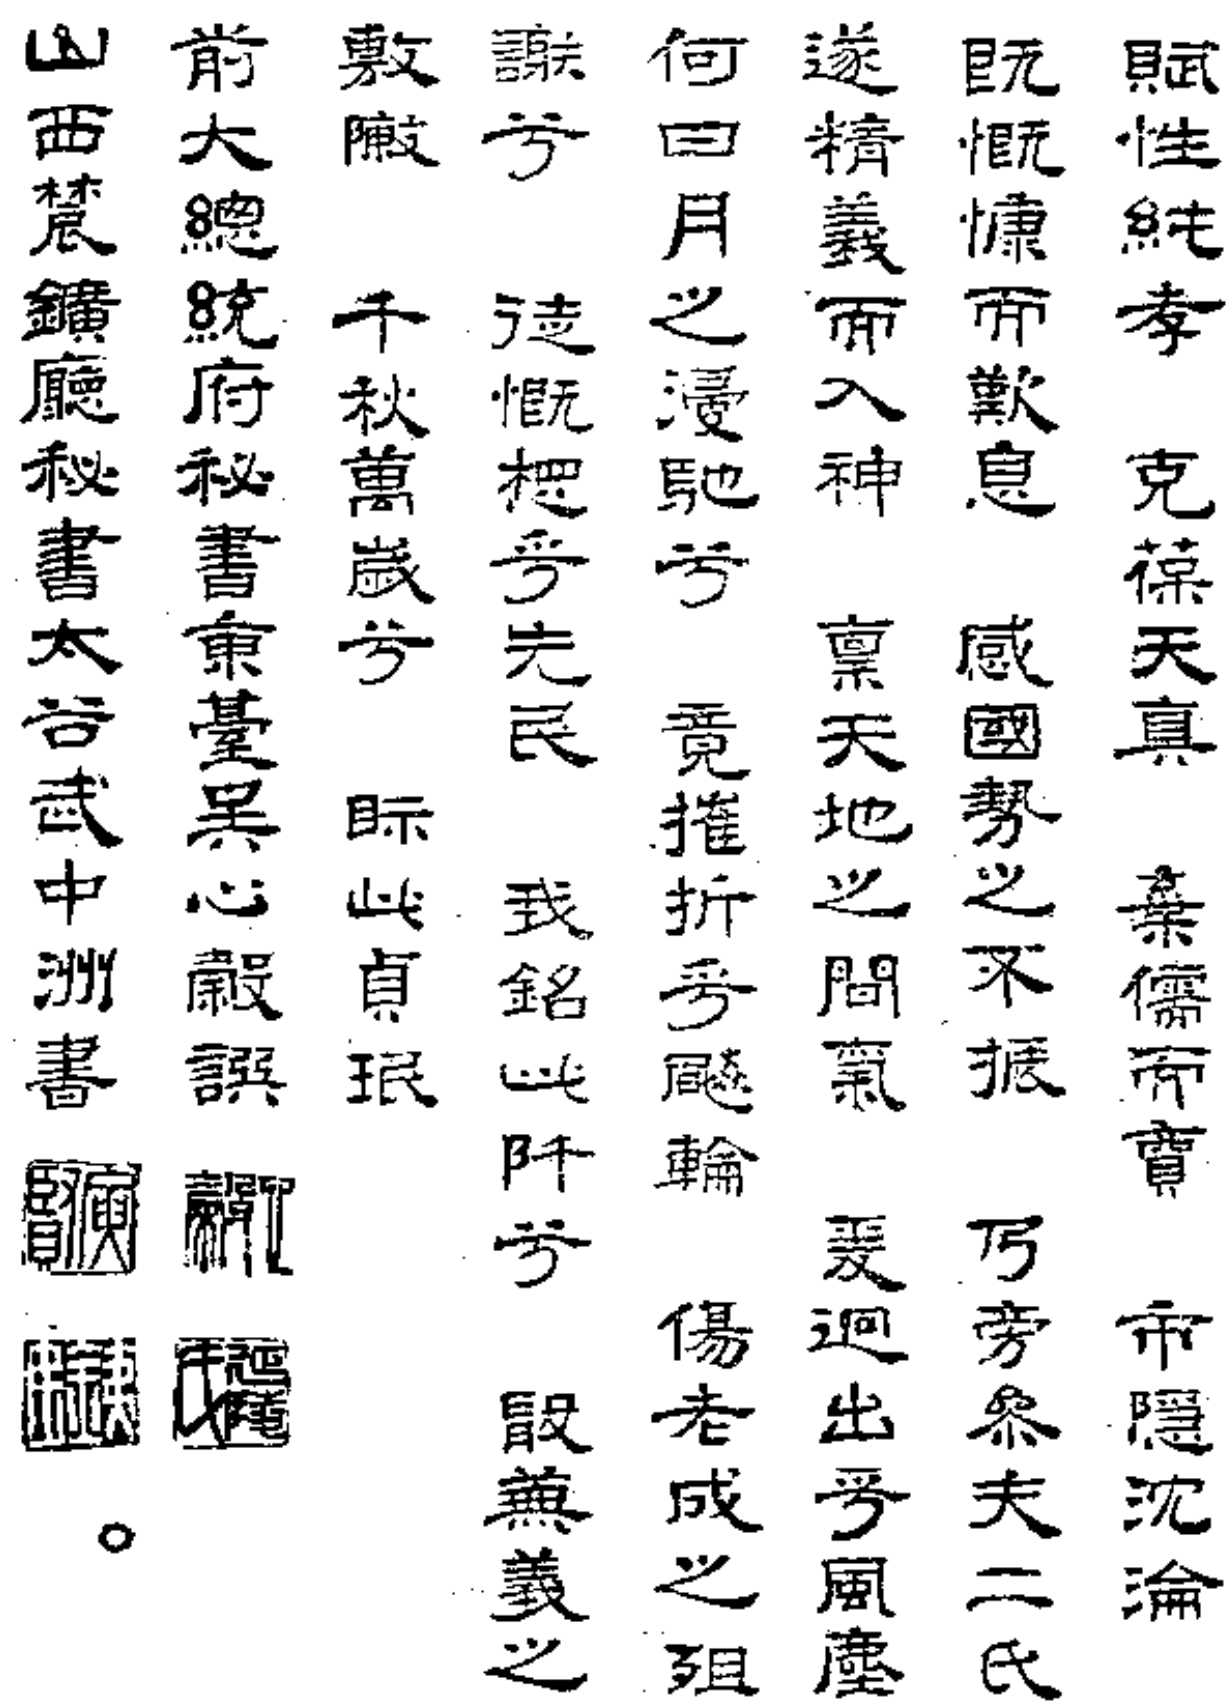 賦性純孝 克葆天真 棄儒而賈 市隱沈淪
既慨慷而歎息 感國勢之不振 乃旁參夫二氏
遂精義而入神 稟天地之間氣 夐迥出乎風塵
何日月之漫馳兮 竟摧折乎飇輪 傷老成之殂
謝兮 徒慨想乎先民 我銘此阡兮 聚義之
敷陳 千秋萬歲兮 眎此貞珉
前大總統府秘書東臺吳心穀譔
山西農鑛廳秘書太谷武中洲書